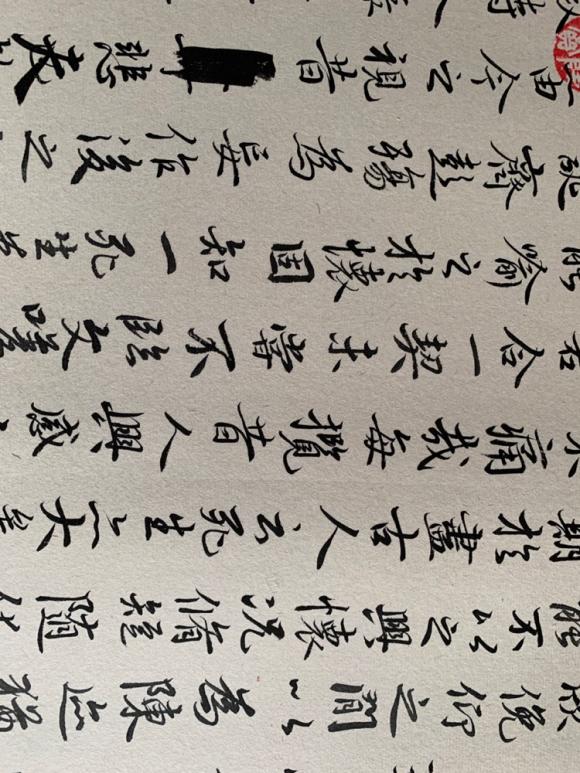 欣俛仰之間以為陳迹猶
能不以之興懷況修短隨化
期於盡古人云死生亦大矣
不痛哉每攬昔人興感
若合一契未嘗不臨文嗟
能喻之於懷固知一死生為
誕齊彭殤為妄作後之
由今之視昔悲夫
時人